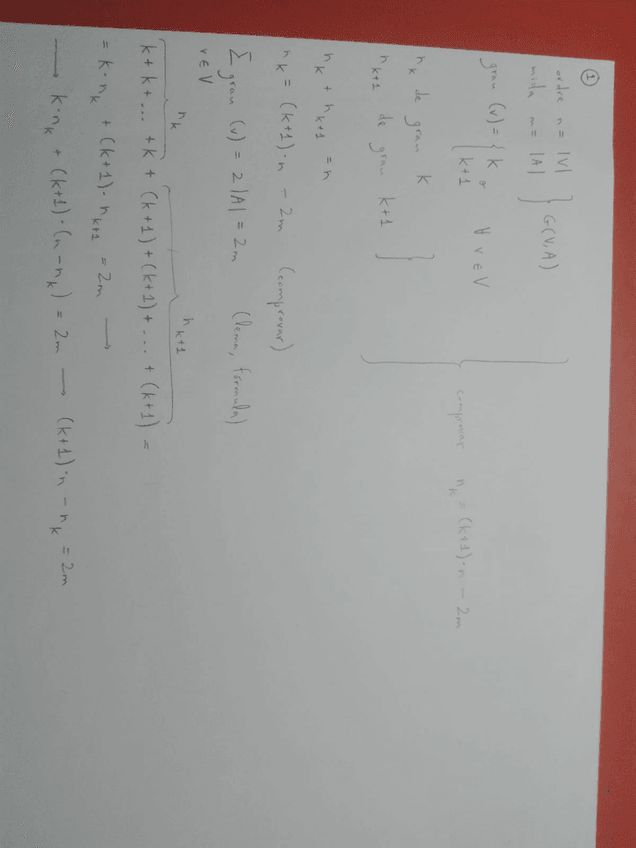 ①
ordre n = |V|
mida m = |A| } G(V,A)
grau (v) = { k o k+1 ∀ v ∈ V
n_k de grau k
n_{k+1} de grau k+1 }
comprovar n_k = (k+1)·n − 2m
n_k + n_{k+1} = n
n_k = (k+1)·n − 2m (comprovar)
∑_{v∈V} grau (v) = 2|A| = 2m (lema, fórmula)
n_k n_{k+1}
k+k+...+k + (k+1)+(k+1)+...+(k+1) =
= k·n_k + (k+1)·n_{k+1} = 2m →
→ k·n_k + (k+1)·(n−n_k) = 2m → (k+1)·n − n_k = 2m